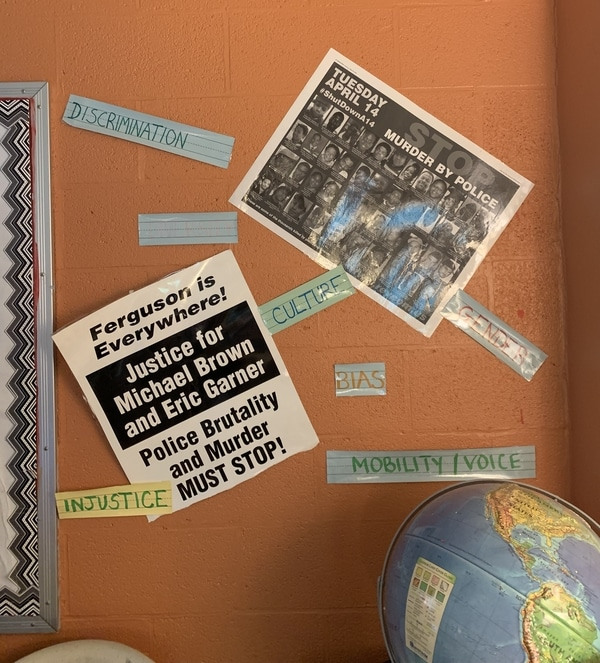 DISCRIMINATION
TUESDAY
APRIL 14
#ShutDownA14
STOP
MURDER BY POLICE
Ferguson is
Everywhere!
Justice for
Michael Brown
and Eric Garner
Police Brutality
and Murder
MUST STOP!
CULTURE
GENDER
BIAS
MOBILITY/VOICE
INJUSTICE